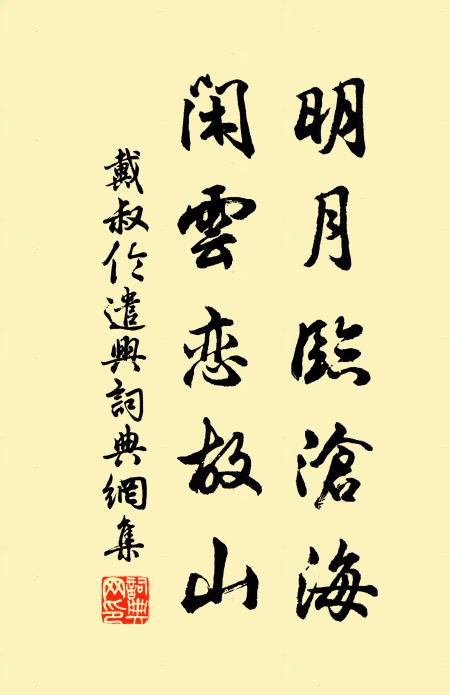 明月臨滄海
闲雲恋故山
戴叔伦遣興詞典網集
詞典
网印